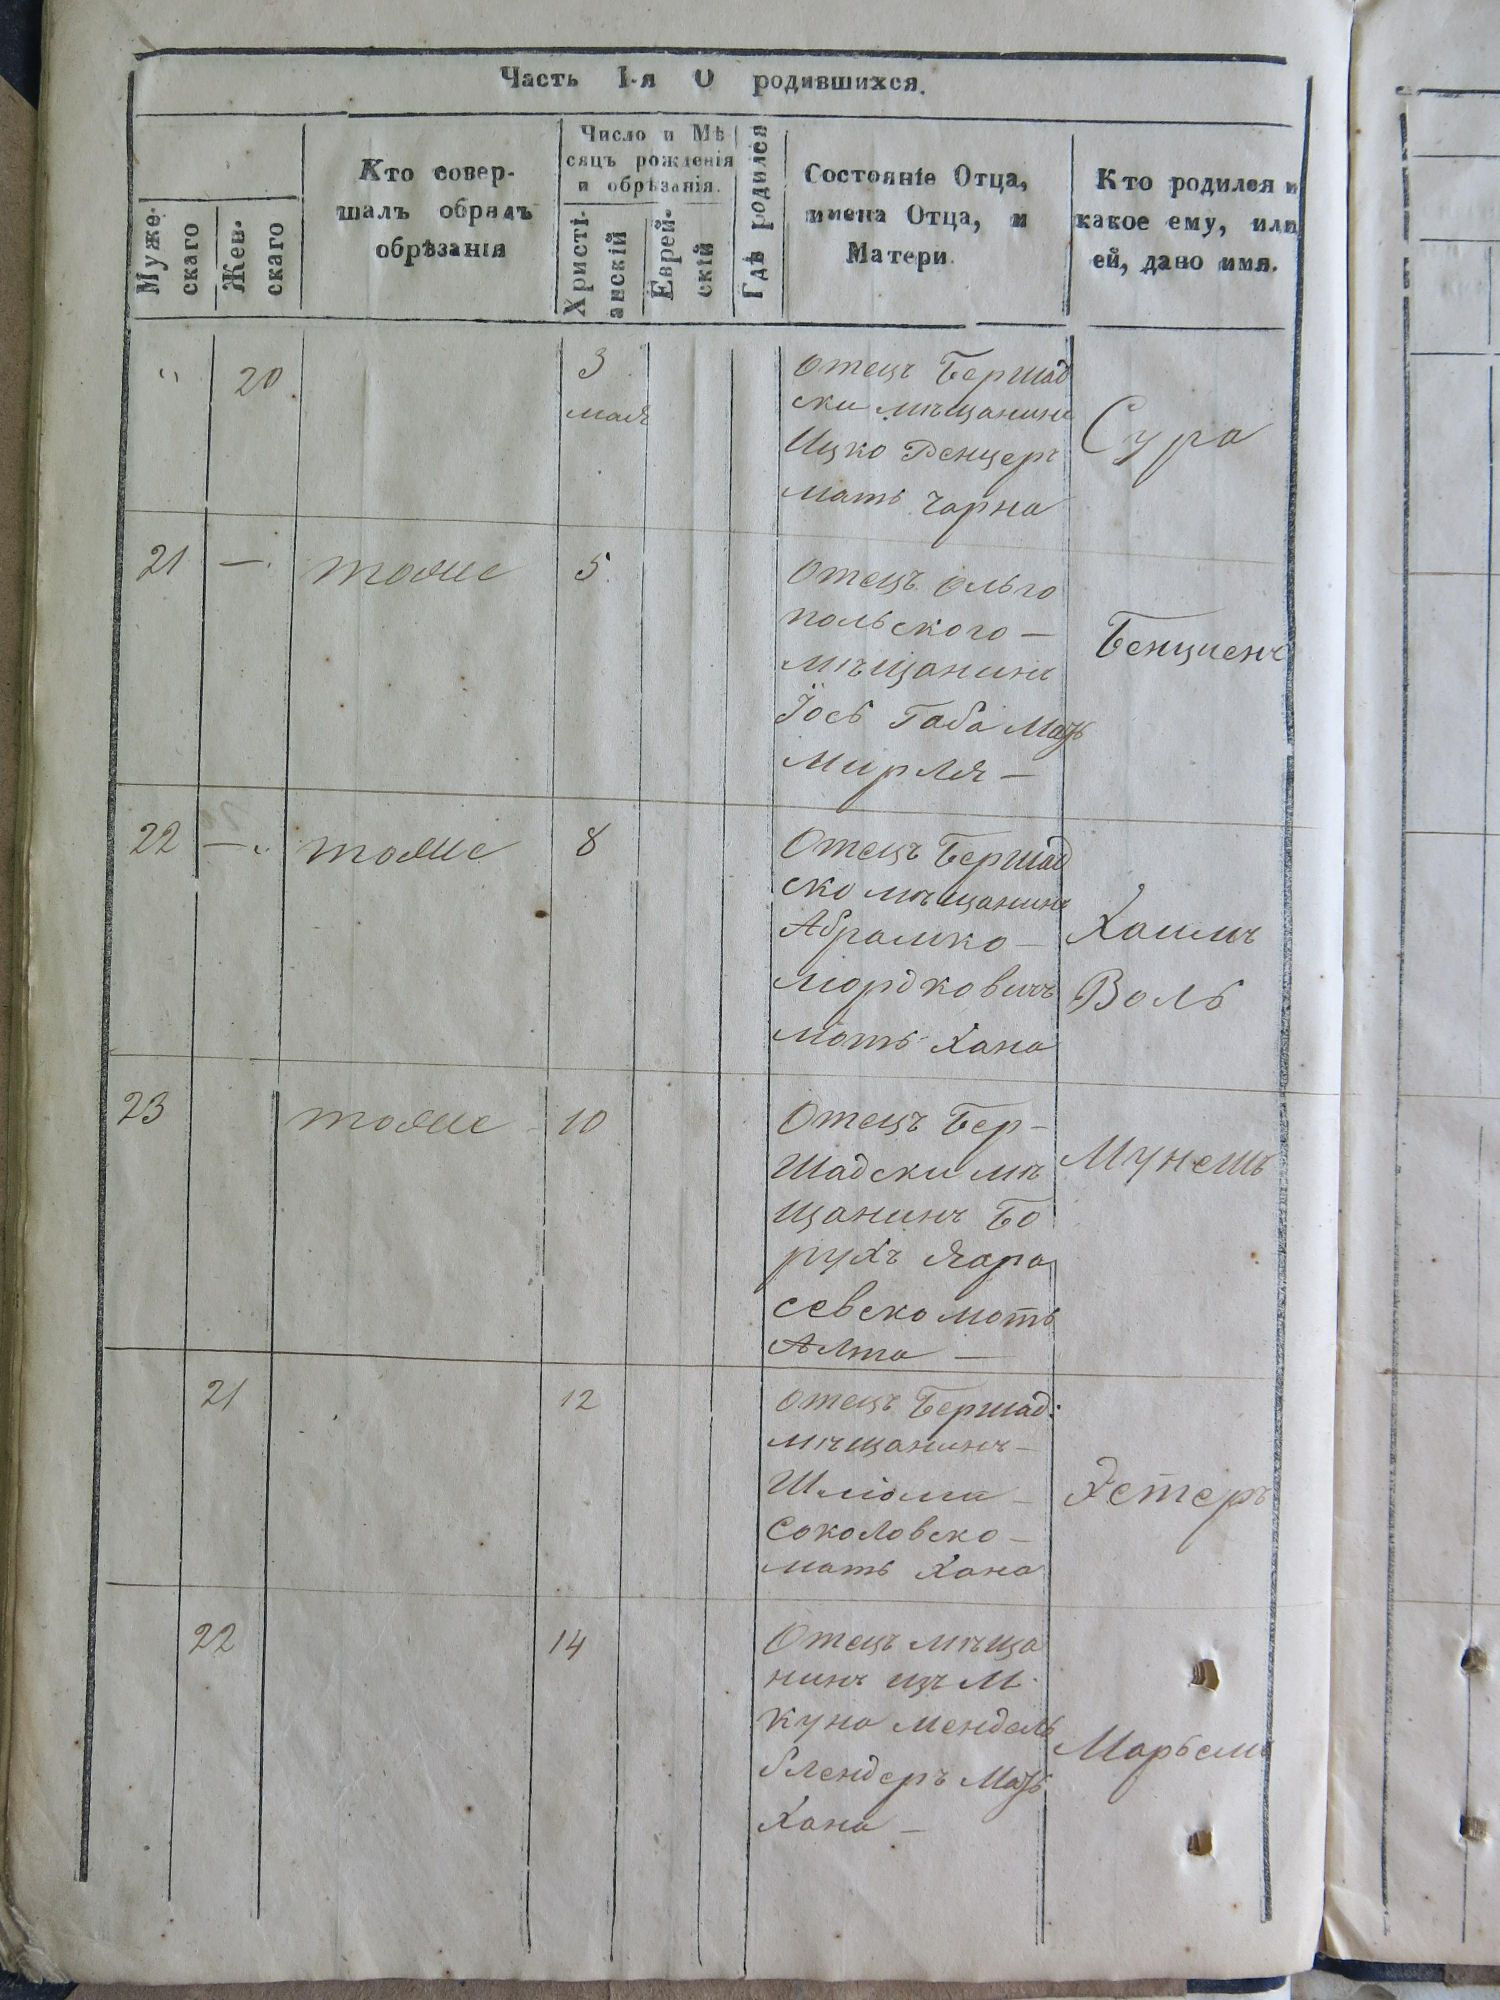 Часть I-я О родившихся.
Мужескаго
Женскаго
Кто совер-
шалъ обрядъ
обрѣзанія
Число и Мѣ
сяцъ рожденія
и обрѣзанія.
Христі-
анскій
Еврей-
скій
Гдѣ родился
Состояніе Отца,
имена Отца, и
Матери.
Кто родился и
какое ему, или
ей, дано имя.
" 20
3
мая
Отецъ Бершад
ски мѣщанинъ
Ицко
мать Чарна
Сура
21 — тоже 5
Отецъ Ольго
польского —
мѣщанинъ
Іось Габа Мать
Мирля —
Бенционъ
22 — тоже 8
Отецъ Бершад
ско мѣщанинъ
Абрамко —
Мордковичъ
Мать Хана
Хаимъ
Воль
23 тоже 10
Отецъ Бер-
шадски мѣ
щанинъ Бо
рухъ
севско мать
Алта —
Мунешъ
21 12
Отецъ Бершад:
мѣщанинъ —
Шліома —
Соколовско —
мать Хана
Эстеръ
22 14
Отецъ мѣща
нинъ изъ М.
Куна Мендель
Блендеръ Мать
Хана —
Марьемъ